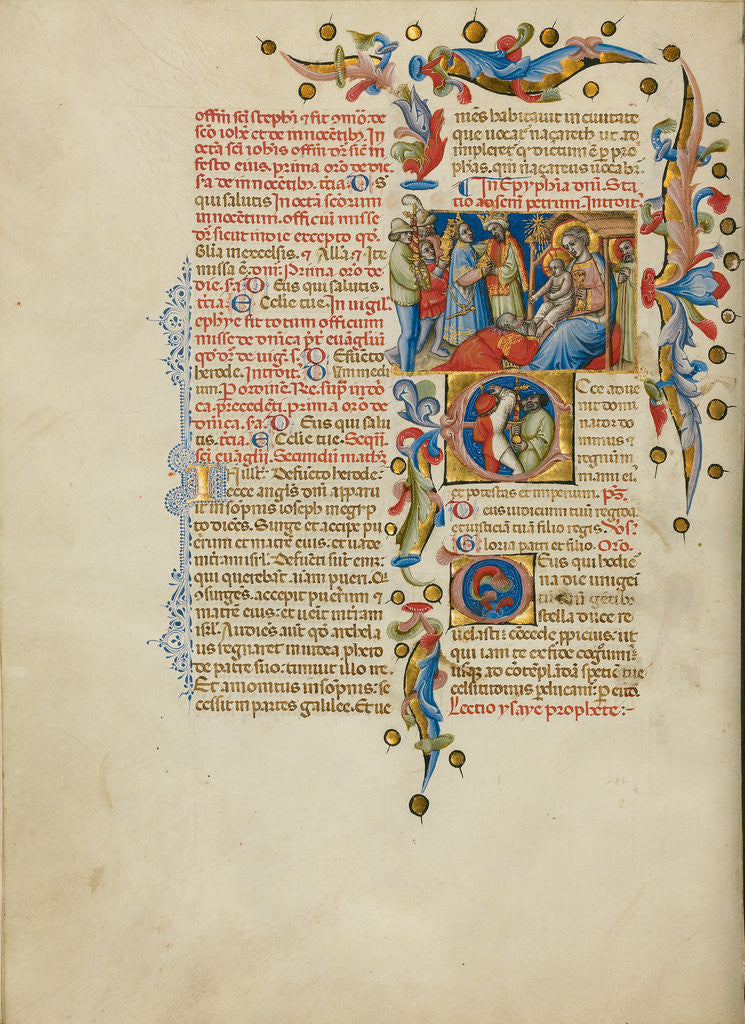 offm sci stephi ⁊ fit ꝯmo de
sco ioħe et de innocentib; In
octa sci ioħis offm dr̄ sic̄ in
festo eius. prima oro de die.
sa de innocentib; tc̄ia. Ds
qui salutis In octa scorum
innocentum. officiū misse
dr̄ sicut in die excepto qđ
Glia in excelsis. ⁊ Alla ⁊ Ite
missa ē. dnr̄ Prima oro de
die. sa. Deus qui salutis.
tc̄ia. Ecclie tue. In uigil.
ephye fit totum officium
misse de dnica p̄t euāgliū
qđ dr̄ de uig. s. Defūcto
herode. Introit. Dum medi
um P ordinē. Re. sup̄ in dō
ca p̄cedēti. prima oro de
dnica. sa. Deus qui salu
tis. tc̄ia. Ecclie tue. Sequē.
sci euāglii. Secundū matħ.
In illo t̄. Defūcto herode:
ecce angls dnī apparu
it in sopnis ioseph in egi p
to dicēs. Surge et accipe pu
erum et matrē eius. et uade
in trā isrl. Defūcti sūt eni:
qui querebāt aīam pueri. Q
ꝯsurgēs. accepit puerum ⁊
matrē eius: et uēit in trā
isrl. Audiēs aūt qđ archela
us regnaret in iudea p hero
de patre suo: timuit illo ire.
Et amonitus in sopnis: se
cessit in partes galilee. Et ue
niēs habitauit in ciuitate
que uocat̄ naçareth ut ad
impleret̄ qđ dictum ē p pro
phās. qm̄ naçareus uocabit̄
In Epyphia dnī. Sta
tio ad scm̄ petrum. Introit̄
Ecce adue
nit domi
nator do
minus ⁊
regnū in
manu ei
et potestas et imperium. ps.
Deus iudicium tuū regi da.
et iusticiā tuā filio regis. Vs.
Gloria patri et filio. Oro.
Deus qui hodie
na die unigeni
tum tuū gētib;
stella duce re
uelasti: cōcede p̄picius. ut
qui iam te ex fide cognouim
usq; ad cōtēplādā speciē tue
celsitudinis pducam̄. p eūdē.
Lectio ysaye prophete:-